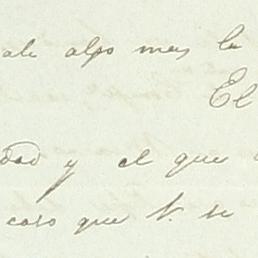 ale algo mas la
El
dad y el que
caso que V. se